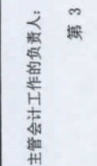 主管会计工作的负责人：
第 3